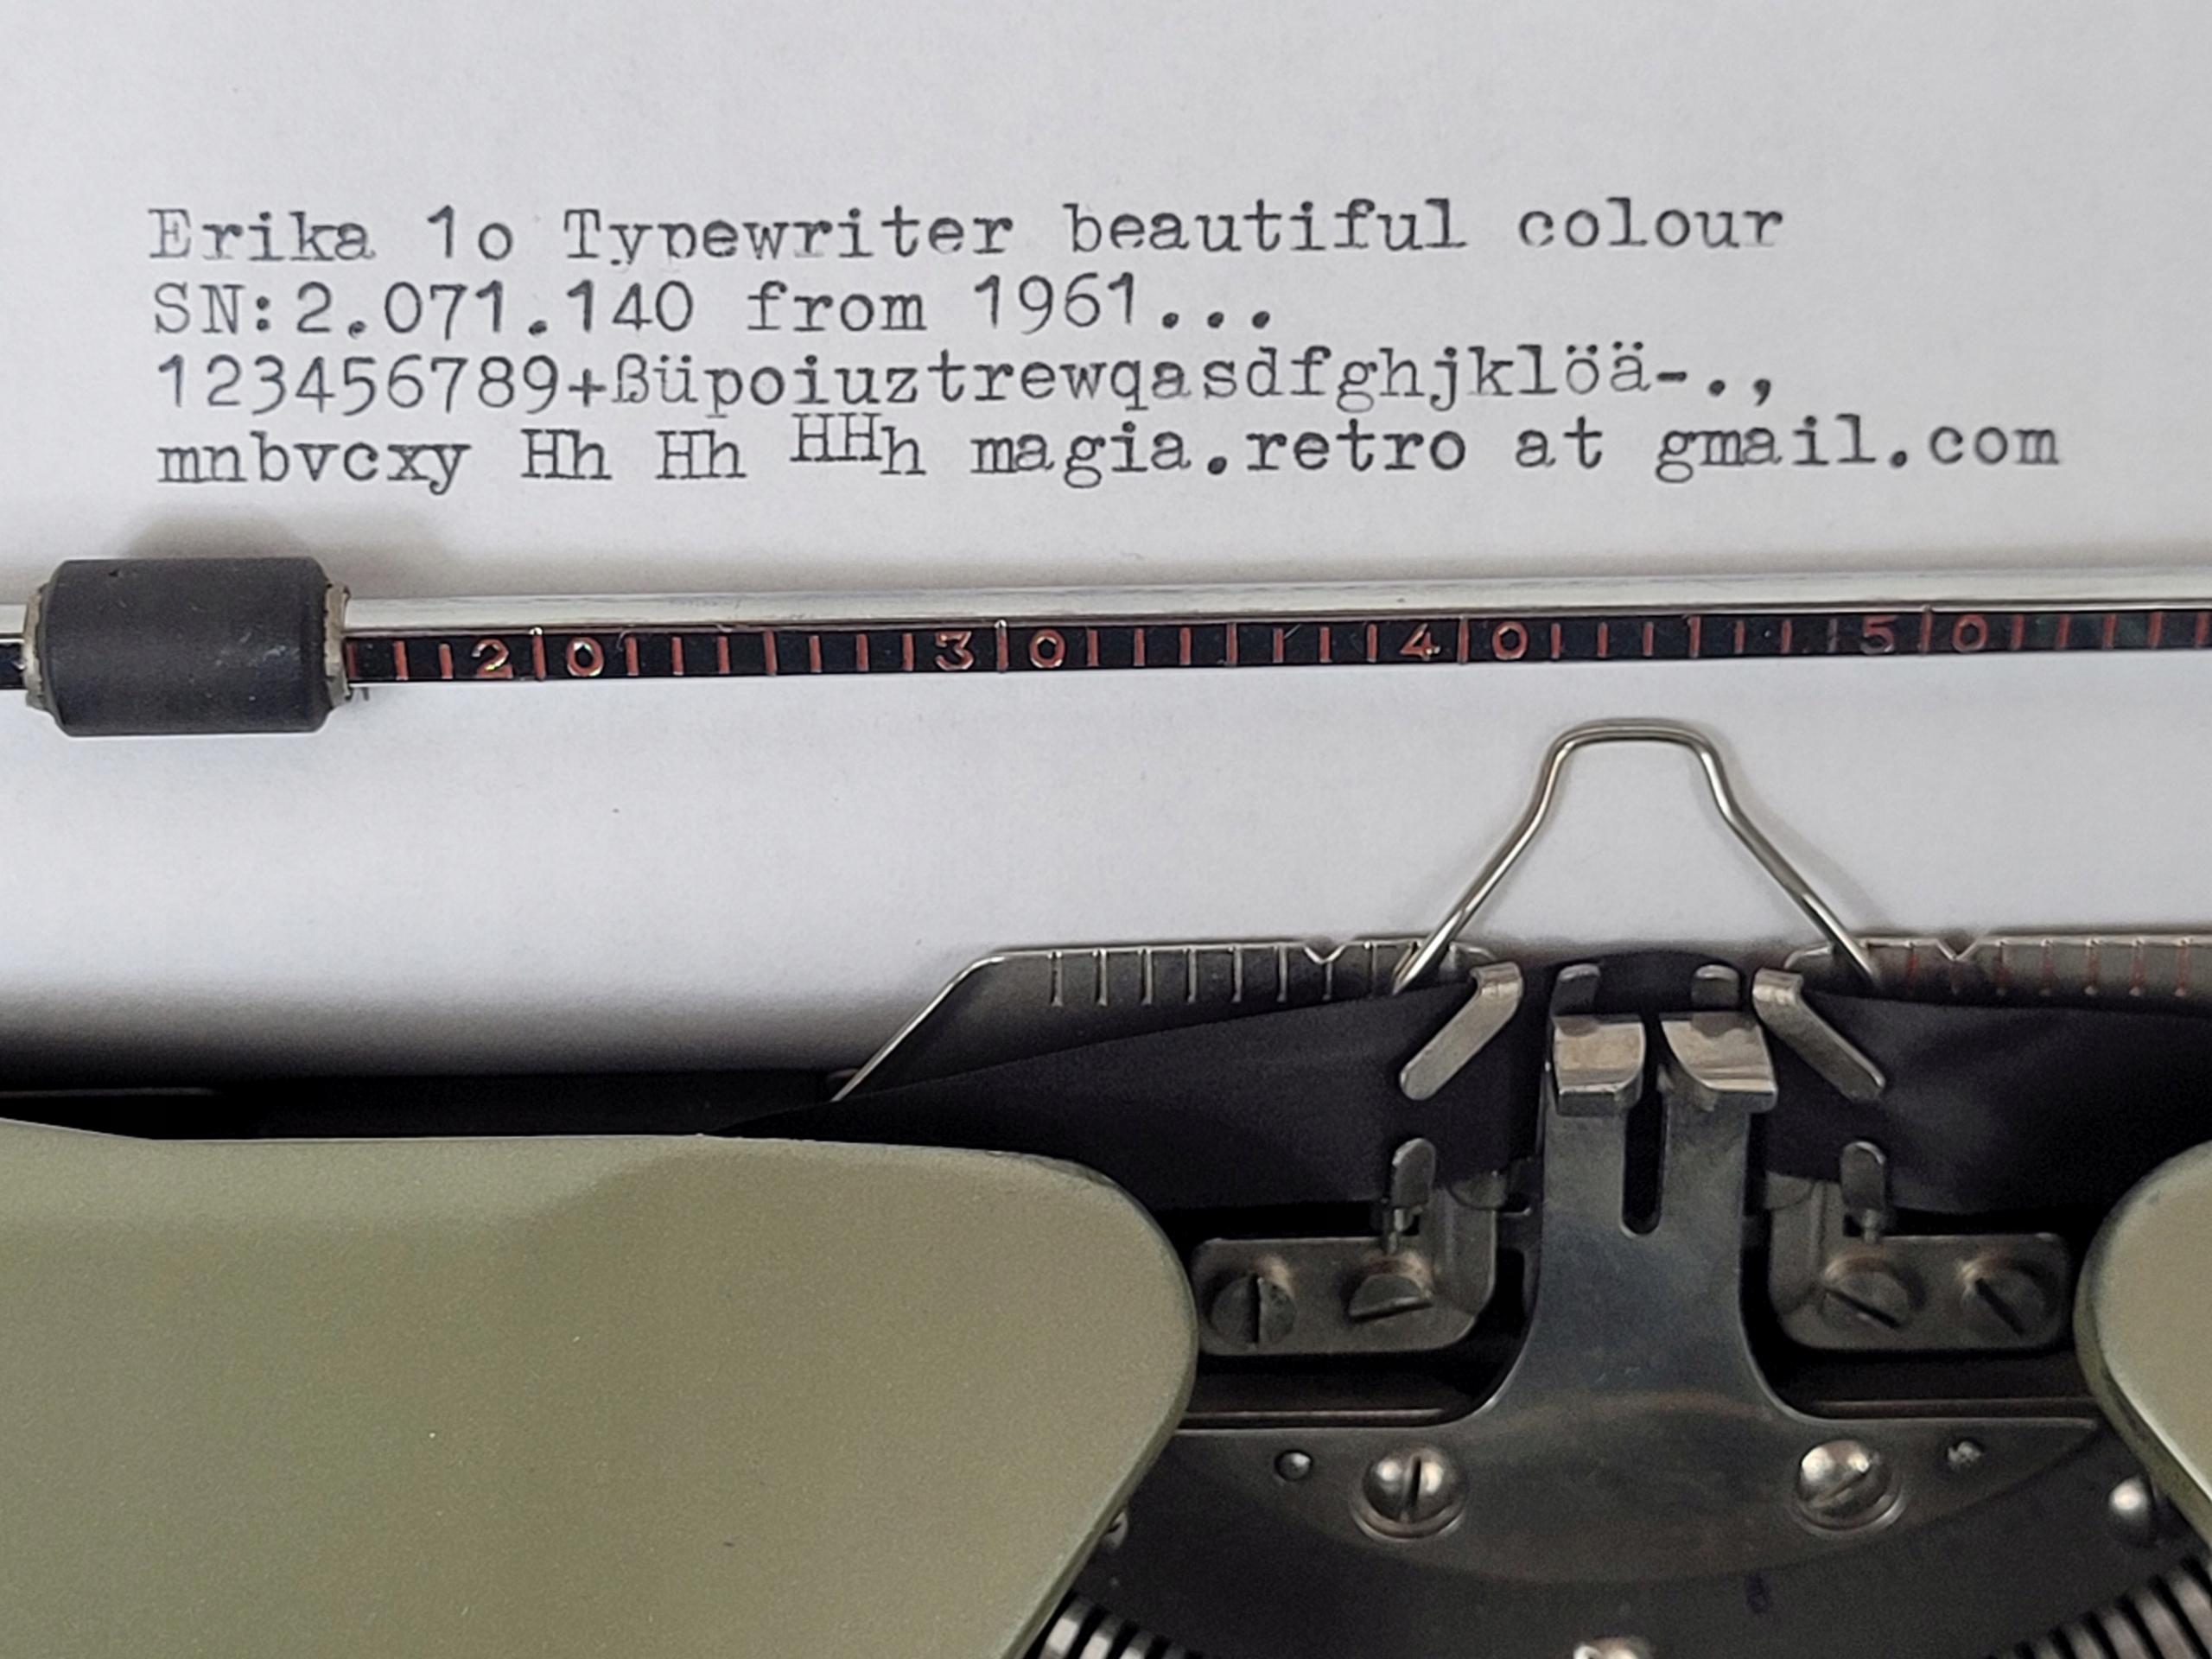 Erika 1o Typewriter beautiful colour
SN:2.071.140 from 1961...
123456789+ßüpoiuztrewqasdfghjklöä-.,
mnbvcxy Hh Hh HHh magia.retro at gmail.com
20 30 40 50